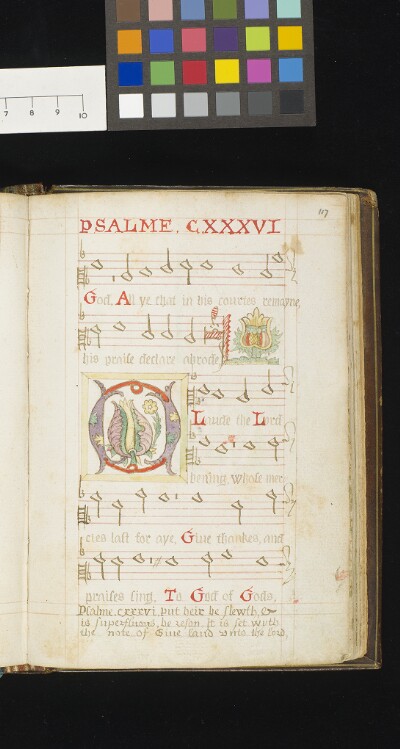 7 8 9 10
117
PSALME. CXXXVI
God. All ye that in his courtes remayne,
his praise declare abrode
O Laude the Lord
bening whose mer
cies last for aye, Giue thankes, and
praises sing, To God of Gods,
Psalme.cxxxvi. put heir be slewth, &
is superfluus, be reson. It is set wyth
the note of Giue laud vnto the lord,